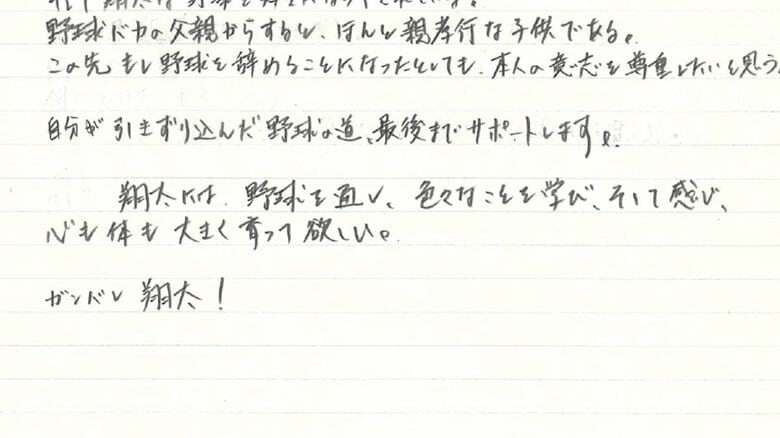 野球バカの父親からすると、ほんと親孝行な子供である。
この先もし野球を辞めることになったとしても、本人の意志を尊重したいと思う。
自分が引きずり込んだ野球の道、最後までサポートします。
翔太には、野球を通し、色々なことを学び、そして感じ、
心も体も大きく育って欲しい。
ガンバレ 翔太！